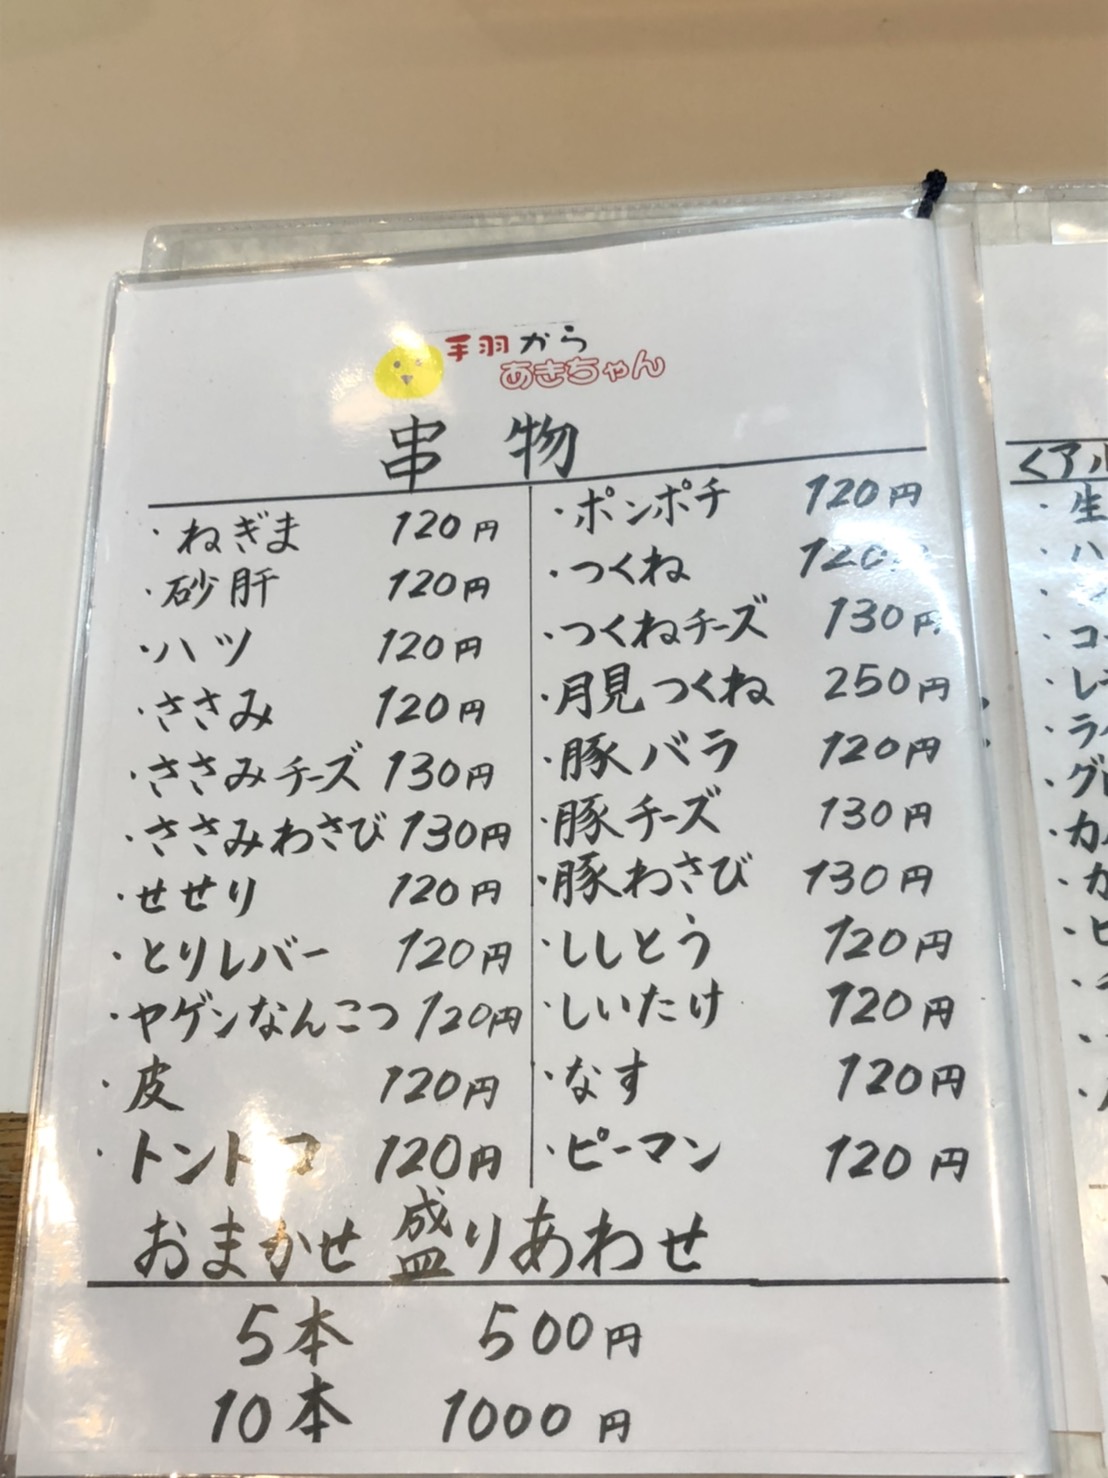 手羽から
あきちゃん
串物
・ねぎま 120円
・砂肝 120円
・ハツ 120円
・ささみ 120円
・ささみチーズ 130円
・ささみわさび 130円
・せせり 120円
・とりレバー 120円
・ヤゲンなんこつ 120円
・皮 120円
・トントロ 120円
・ポンポチ 120円
・つくね 120
・つくねチーズ 130円
・月見つくね 250円
・豚バラ 120円
・豚チーズ 130円
・豚わさび 130円
・ししとう 120円
・しいたけ 120円
・なす 120円
・ピーマン 120円
おまかせ盛りあわせ
5本 500円
10本 1000円